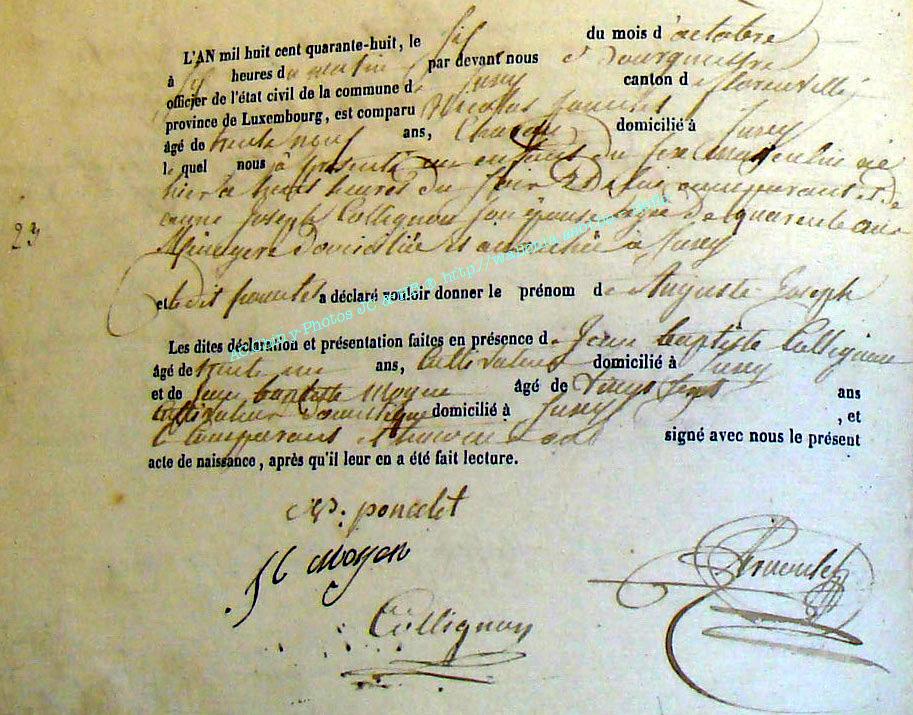 L'AN mil huit cent quarante-huit, le six du mois d'octobre
à six heures du matin par devant nous Bourgmestre
officier de l'état civil de la commune de Furey canton de florenville,
province de Luxembourg, est comparu Nicolas poncelet
âgé de trente neuf ans, domicilié à Furey
le quel nous à présenté un enfant du sexe masculin né
hier à trois heures du soir de lui comparant et de
Joseph Collignon son épouse agée de quarente ans
Ménagere domiciliée et à Furey
23
et le dit poncelet a déclaré vouloir donner le prénom de Auguste Joseph
Les dites déclaration et présentation faites en présence de Jean baptiste Collignon
âgé de trente un ans, Cultivateur domicilié à Furey
et de Jean baptiste Moyen âgé de Vingt sept ans
domestique domicilié à Furey , et
Comparant et témoins ont signé avec nous le présent
acte de naissance, après qu'il leur en a été fait lecture.
poncelet
Moyen
Collignon
Acom by Photos JC & http://wallonia.